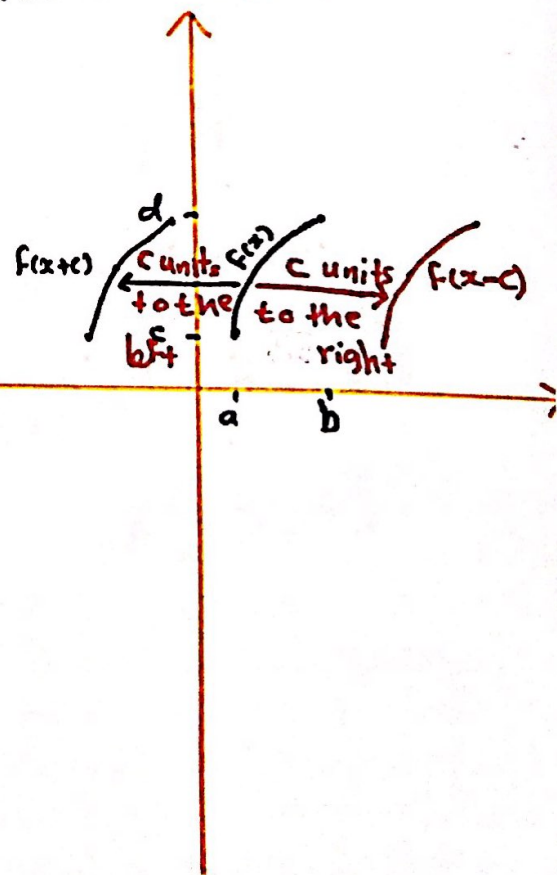 d
f(x+c)
c units
to the
left
c
f(x)
c units
to the
right
f(x-c)
a
b